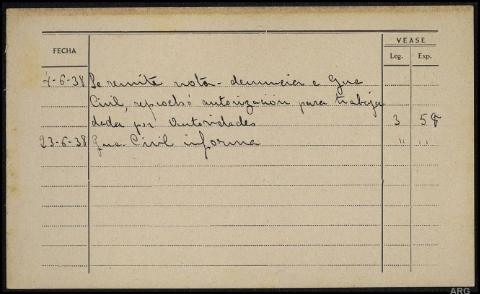 FECHA
VEASE
Leg. Exp.
4-6-38 Se remite nota-denuncia a Gua
Civil, autorización para trabaja
dada por Autoridades 3 57
23-6-38 Gua. Civil informa " "
ARG